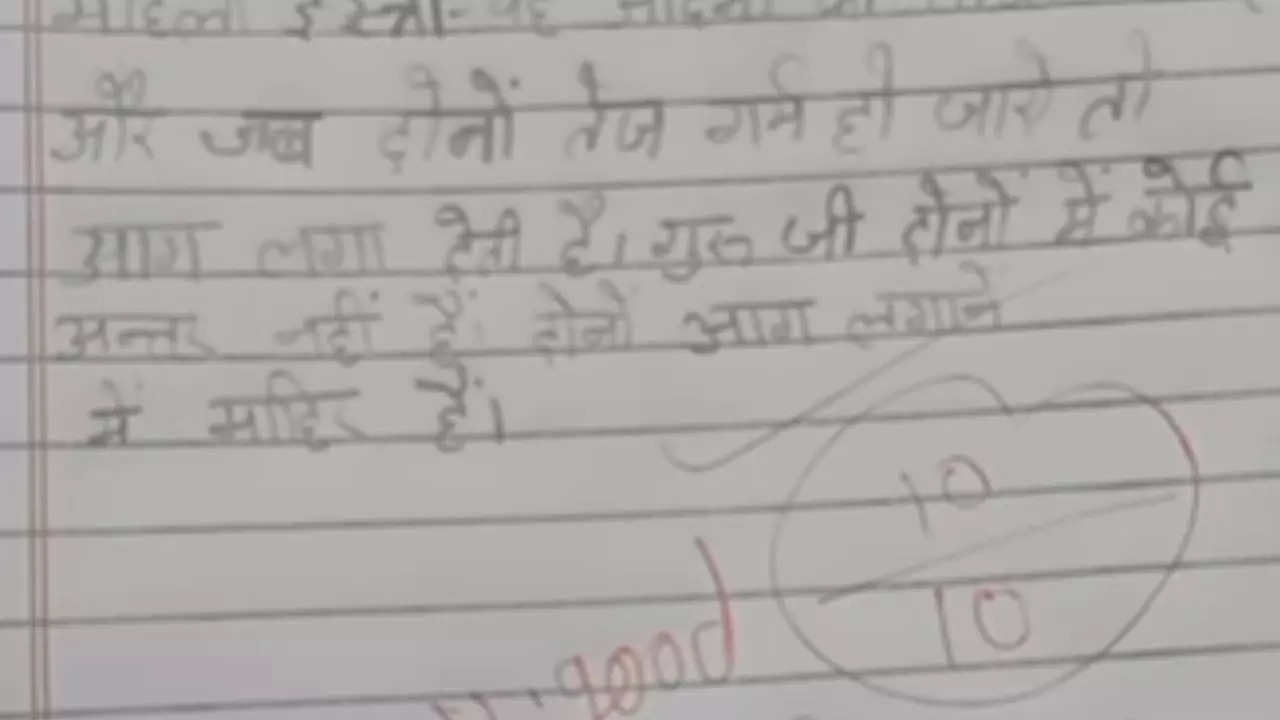 महिला इस्त्री- यह
और जब दोनों तेज गर्म हो जाये तो
आग लगा देती है। गुरु जी दोनों में कोई
अन्तर नहीं हैं दोनों आग लगाने
में माहिर हैं।
10
10
good